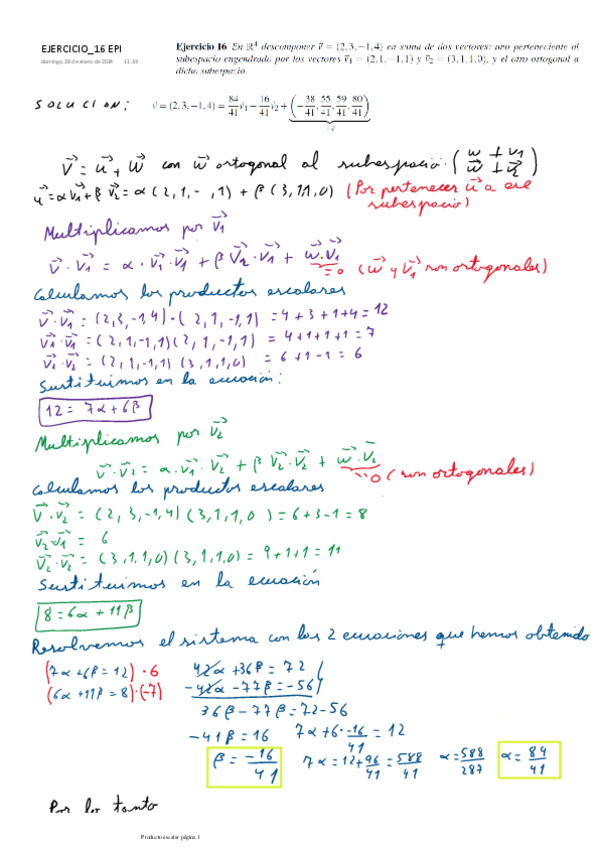 EJERCICIO_16 EPI
domingo, 28 de enero de 2024 11:33
Ejercicio 16 En ℝ⁴ descomponer v⃗ = (2, 3, −1, 4) en suma de dos vectores: uno perteneciente al
subespacio engendrado por los vectores v⃗₁ = (2, 1, −1, 1) y v⃗₂ = (3, 1, 1, 0), y el otro ortogonal a
dicho subespacio.
SOLUCION: v⃗ = (2, 3, −1, 4) = 84/41 v⃗₁ − 16/41 v⃗₂ + (−38/41, 55/41, 59/41, 80/41)
v⃗ = u⃗ + w⃗ con w⃗ ortogonal al subespacio. (w⃗ ⊥ v⃗₁ w⃗ ⊥ v⃗₂)
u⃗ = αv⃗₁ + βv⃗₂ = α(2, 1, -, 1) + β(3, 1, 1, 0) (Por pertenecer u⃗ a ese
subespacio)
Multiplicamos por v⃗₁
v⃗ · v⃗₁ = α · v⃗₁ · v⃗₁ + β v⃗₂ · v⃗₁ + w⃗ · v⃗₁ = 0 (w⃗ y v⃗₁ son ortogonales)
Calculamos los productos escalares
v⃗ · v⃗₁ = (2, 3, -1, 4) · (2, 1, -1, 1) = 4 + 3 + 1 + 4 = 12
v⃗₁ · v⃗₁ = (2, 1, -1, 1)(2, 1, -1, 1) = 4 + 1 + 1 + 1 = 7
v⃗₁ · v⃗₂ = (2, 1, -1, 1) (3, 1, 1, 0) = 6 + 1 - 1 = 6
Sustituimos en la ecuación:
12 = 7α + 6β
Multiplicamos por v⃗₂
v⃗ · v⃗₂ = α · v⃗₁ · v⃗₂ + β v⃗₂ · v⃗₂ + w⃗ · v⃗₂ = 0 (son ortogonales)
Calculamos los productos escalares
v⃗ · v⃗₂ = (2, 3, -1, 4) (3, 1, 1, 0) = 6 + 3 - 1 = 8
v⃗₂ · v⃗₁ = 6
v⃗₂ · v⃗₂ = (3, 1, 1, 0) (3, 1, 1, 0) = 9 + 1 + 1 = 11
Sustituimos en la ecuación
8 = 6α + 11β
Resolvemos el sistema con las 2 ecuaciones que hemos obtenido
(7α + 6β = 12) · 6 42α + 36β = 72
(6α + 11β = 8) · (-7) -42α - 77β = -56
36β - 77β = 72 - 56
-41β = 16 7α + 6 · -16/41 = 12
β = -16/41 7α = 12 + 96/41 = 588/41 α = 588/287 α = 84/41
Por lo tanto
Producto escalar página 1